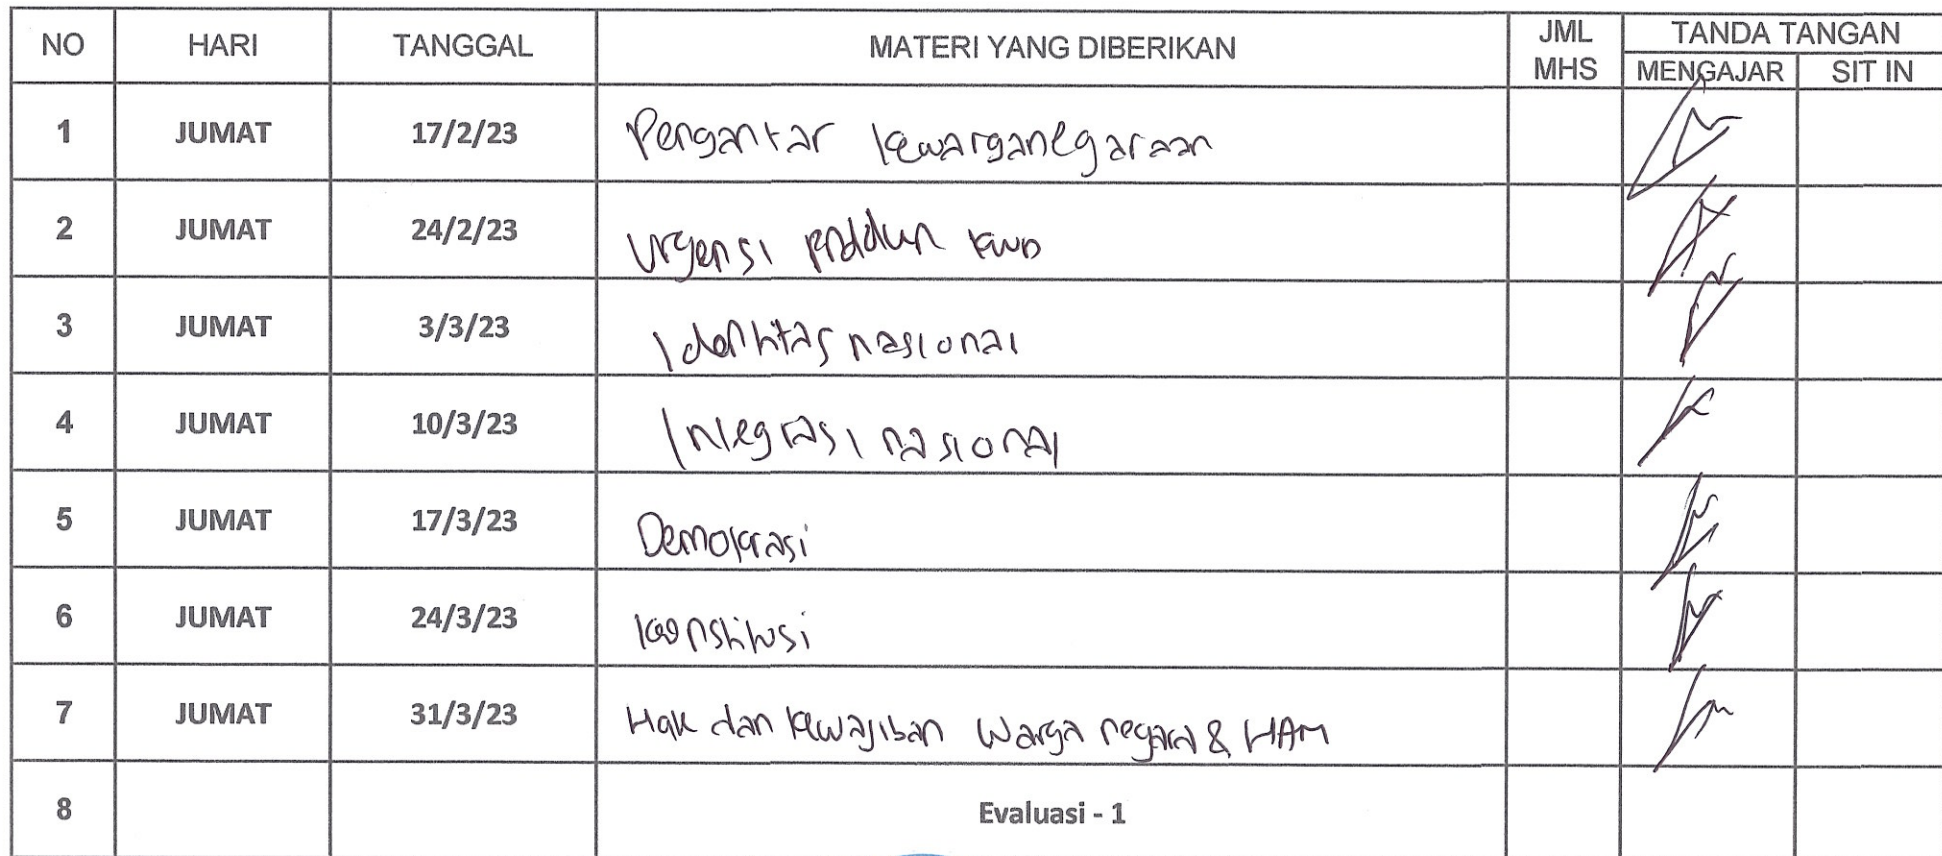 NO HARI TANGGAL MATERI YANG DIBERIKAN JML MHS TANDA TANGAN
MENGAJAR SIT IN
1 JUMAT 17/2/23 Pengantar kewarganegaraan
2 JUMAT 24/2/23 Urgensi
3 JUMAT 3/3/23 Identitas nasional
4 JUMAT 10/3/23 Integrasi nasional
5 JUMAT 17/3/23 Demokrasi
6 JUMAT 24/3/23 konstitusi
7 JUMAT 31/3/23 Hak dan kewajiban Warga negara & HAM
8 Evaluasi - 1